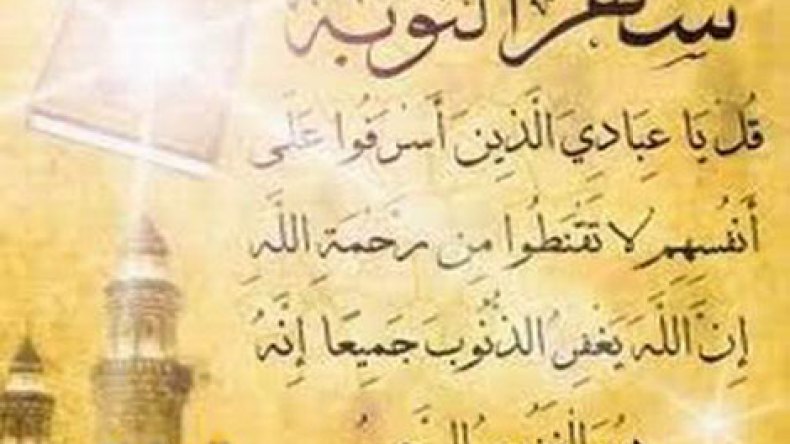 قُلْ يَا عِبَادِيَ الَّذِينَ أَسْرَفُوا عَلَى
أَنْفُسِهِمْ لَا تَقْنَطُوا مِن رَحْمَةِ اللَّهِ
إِنَّ اللَّهَ يَغْفِرُ الذُّنُوبَ جَمِيعًا إِنَّهُ